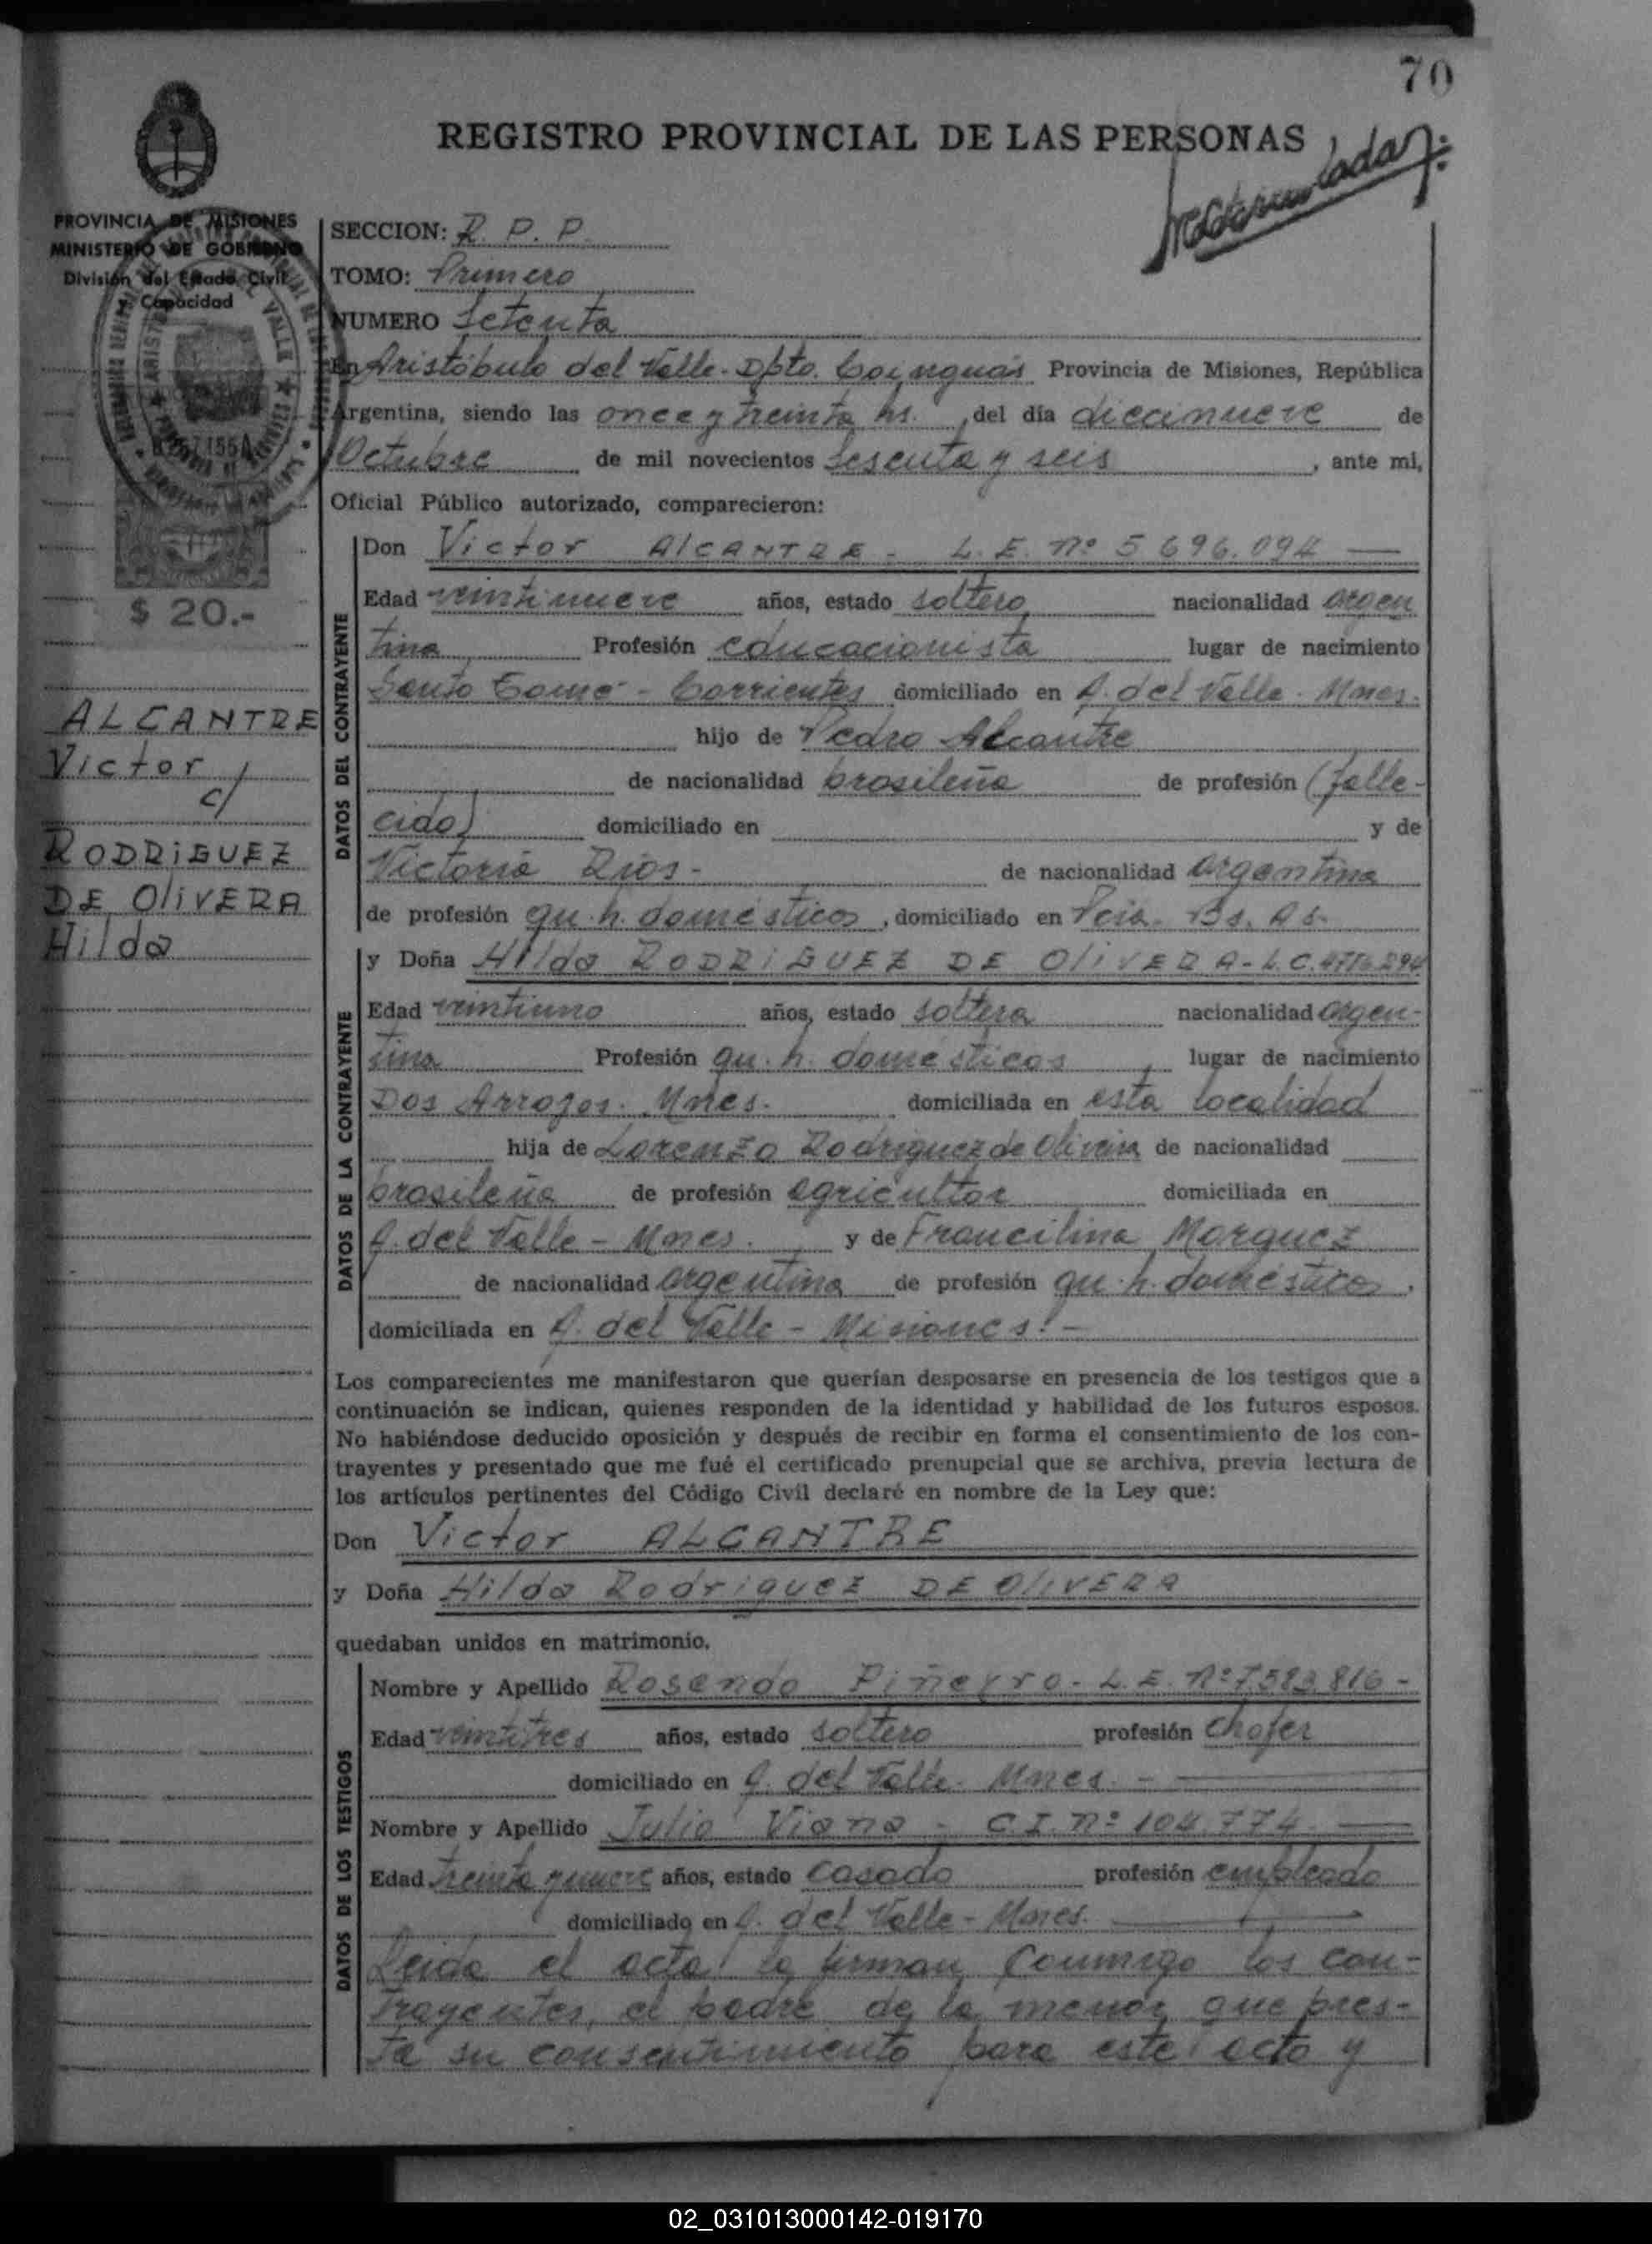 70
REGISTRO PROVINCIAL DE LAS PERSONAS
PROVINCIA DE MISIONES
MINISTERIO DE GOBIERNO
División del Estado Civil
y Capacidad
$ 20.-
ALCANTRE
Victor
c/
RODRIGUEZ
DE OliVERA
Hilda
SECCION: R. P. P.
TOMO: Primero
NUMERO Setenta
En Aristóbulo del Valle - Dpto. Cainguás Provincia de Misiones, República
Argentina, siendo las once y treinta hs. , del día diecinueve de
Octubre de mil novecientos sesenta y seis , ante mi,
Oficial Público autorizado, comparecieron:
DATOS DEL CONTRAYENTE
Don Victor AlCANTRE - L. E. nº 5 696.094
Edad veintinueve años, estado soltero nacionalidad argen
tina Profesión educacionista lugar de nacimiento
Santo Tomé - Corrientes domiciliado en A. del Valle - Mnes.
hijo de Pedro Alcantre
de nacionalidad brasileña de profesión (falle-
cido) domiciliado en y de
Victoria Rios - de nacionalidad argentina
de profesión qu. h. domésticos , domiciliado en Pcia. Bs. As.
DATOS DE LA CONTRAYENTE
y Doña Hilda RODRiGUEZ DE OliVERA - L. C.
Edad veintiuno años, estado soltera nacionalidad argen-
tina Profesión qu. h. domésticos , lugar de nacimiento
Dos Arroyos. Mnes. domiciliada en esta localidad
hija de Lorenzo Rodriguez de Olivera de nacionalidad
brasileña de profesión agricultor domiciliada en
A. del Valle - Mnes. y de Francilina Marquez
de nacionalidad argentina de profesión qu. h. domésticos .
domiciliada en A. del Valle - Misiones. -
Los comparecientes me manifestaron que querían desposarse en presencia de los testigos que a
continuación se indican, quienes responden de la identidad y habilidad de los futuros esposos.
No habiéndose deducido oposición y después de recibir en forma el consentimiento de los con-
trayentes y presentado que me fué el certificado prenupcial que se archiva, previa lectura de
los artículos pertinentes del Código Civil declaré en nombre de la Ley que:
Don Victor ALCANTRE
y Doña Hilda Rodriguez DE OlivERA
quedaban unidos en matrimonio.
DATOS DE LOS TESTIGOS
Nombre y Apellido Rosendo Piñeyro - L. E. nº 7.583.816 -
Edad veintitres años, estado soltero profesión chofer
domiciliado en A. del Valle - Mnes. -
Nombre y Apellido Julio Viana - C. I. nº 104.774
Edad treinta y nueve años, estado casado profesión empleado
domiciliado en A. del Valle - Mnes.
Leida el acta la firman conmigo los con-
trayentes, el padre de la menor que pres-
ta su consentimiento para este acto y
02_031013000142-019170